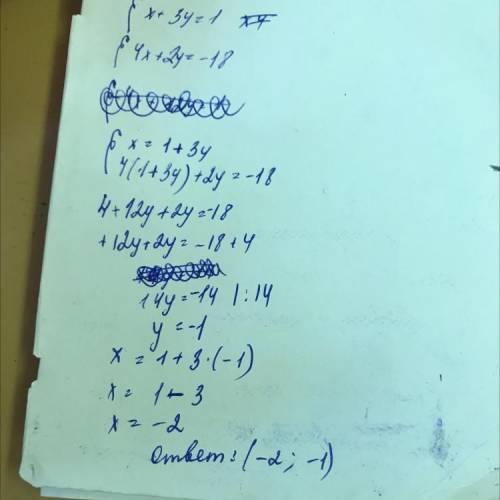 { x + 3y = 1
{ 4x + 2y = -18
{ x = 1 + 3y
4(1 + 3y) + 2y = -18
4 + 12y + 2y = -18
+ 12y + 2y = -18 + 4
14y = -14 | : 14
y = -1
x = 1 + 3 · (-1)
x = 1 - 3
x = -2
ответ: (-2; -1)